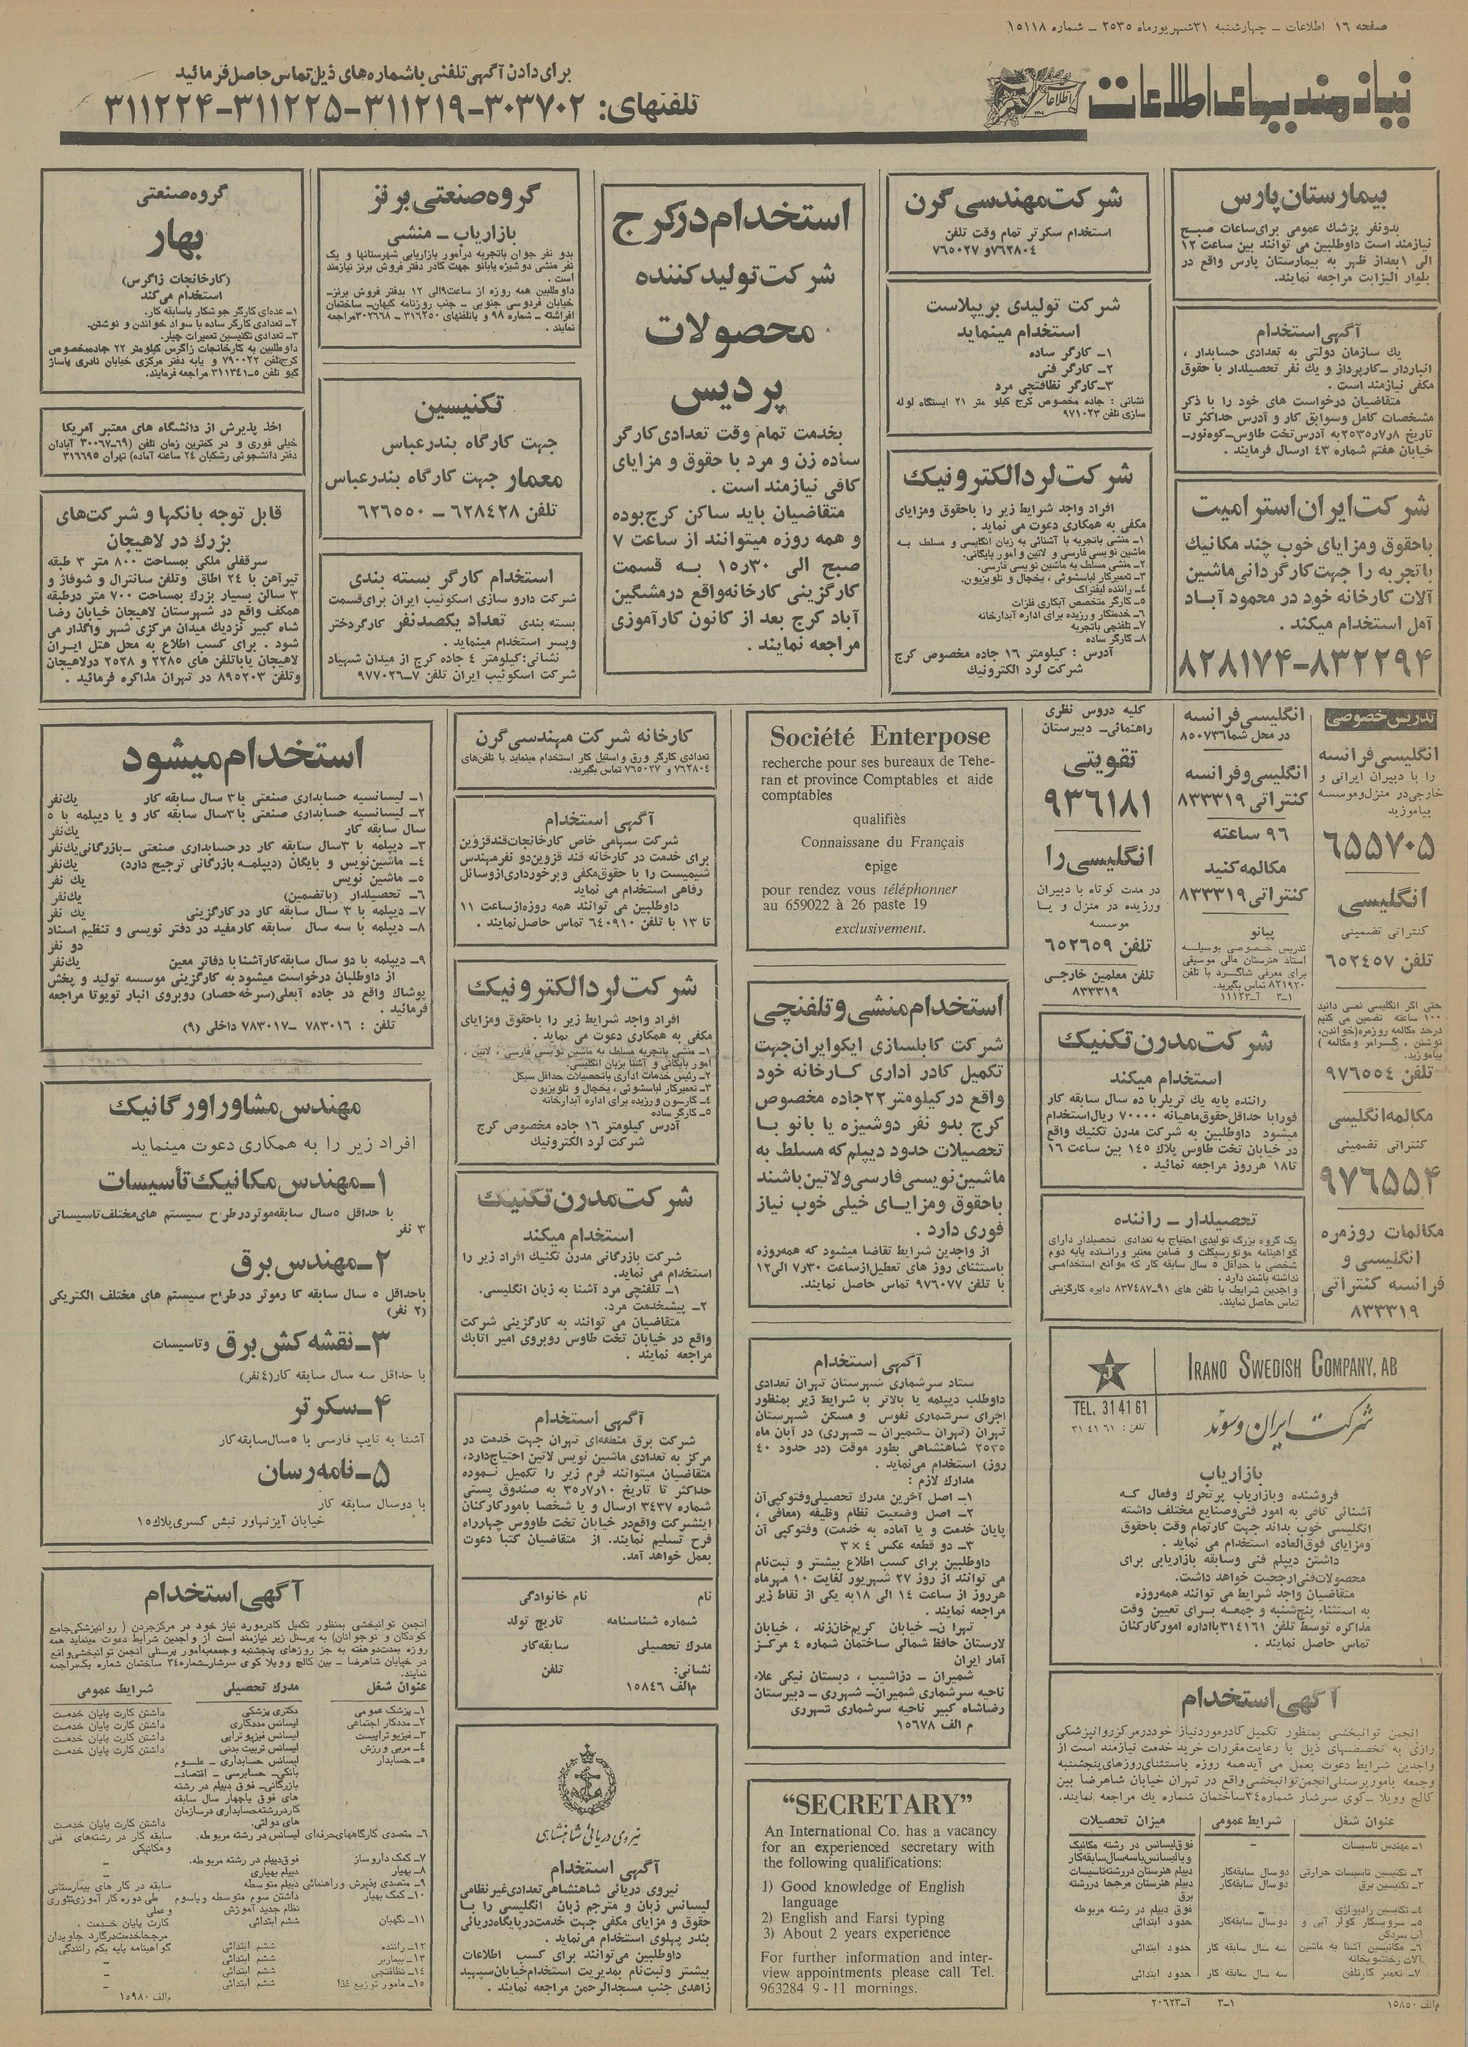 صفحه ۱۶ اطلاعات ــ چهارشنبه ۳۱ شهریورماه ۲۵۳۵ ــ شماره ۱۵۱۱۸
نیازمندیهای اطلاعات
برای دادن آگهی تلفنی با شماره‌های ذیل تماس حاصل فرمائید
تلفنهای: ۳۰۳۷۰۲-۳۱۱۲۱۹-۳۱۱۲۲۵-۳۱۱۲۲۴
بیمارستان پارس
بدونفر پزشک عمومی برای ساعات صبح
نیازمند است داوطلبین می توانند بین ساعت ۱۲
الی ۱ بعداز ظهر به بیمارستان پارس واقع در
بلوار الیزابت مراجعه نمایند.
آگهی استخدام
یک سازمان دولتی به تعدادی حسابدار ،
انباردار ــ کارپرداز و یک نفر تحصیلدار با حقوق
مکفی نیازمند است .
متقاضیان درخواست های خود را با ذکر
مشخصات کامل وسوابق کار و آدرس حداکثر تا
تاریخ ۲۵۳۵ر۷ر۸ به آدرس تخت طاوس-کوه نور-
خیابان هفتم شماره ۴۳ ارسال فرمایند .
شرکت ایران استرامیت
باحقوق ومزایای خوب چند مکانیک
باتجربه را جهت کارگردانی ماشین
آلات کارخانه خود در محمود آباد
آمل استخدام میکند .
۸۲۸۱۷۴-۸۳۲۲۹۴
شرکت مهندسی گرن
استخدام سکرتر تمام وقت تلفن
۷۶۲۸۰۴و ۷۶۵۰۲۷
شرکت تولیدی بریپلاست
استخدام مینماید
۱ــ کارگر ساده
۲ــ کارگر فنی
۳ــ کارگر نظافتچی مرد
نشانی : جاده مخصوص کرج کیلو متر ۲۱ ایستگاه لوله
سازی تلفن ۹۷۱۰۲۳
شرکت لرد الکترونیک
افراد واجد شرایط زیر را باحقوق ومزایای
مکفی به همکاری دعوت می نماید .
۱ــ منشی باتجربه با آشنائی به زبان انگلیسی و مسلط به
ماشین نویسی فارسی و لاتین و امور بایگانی.
۲ــ منشی مسلط به ماشین نویسی فارسی.
۳ــ تعمیرکار لباسشوئی ، یخچال و تلویزیون.
۴ــ راننده لیفتراک
۵ــ کارگر متخصص آبکاری فلزات
۶ــ خدمتکار ورزیده برای اداره آبدارخانه
۷ــ تلفنچی باتجربه
۸ــ کارگر ساده
آدرس : کیلومتر ۱۶ جاده مخصوص کرج
شرکت لرد الکترونیک
استخدام در کرج
شرکت تولید کننده
محصولات
پردیس
بخدمت تمام وقت تعدادی کارگر
ساده زن و مرد با حقوق و مزایای
کافی نیازمند است .
متقاضیان باید ساکن کرج بوده
و همه روزه میتوانند از ساعت ۷
صبح الی ۳۰ر۱۵ به قسمت
کارگزینی کارخانه واقع در مشگین
آباد کرج بعد از کانون کارآموزی
مراجعه نمایند .
گروه صنعتی برنز
بازاریاب ــ منشی
بدو نفر جوان باتجربه درامور بازاریابی شهرستانها و یک
نفر منشی دوشیزه یابانو جهت کادر دفتر فروش برنز نیازمند
است .
داوطلبین همه روزه از ساعت ۹الی ۱۲ بدفتر فروش برنز-
خیابان فردوسی جنوبی ــ جنب روزنامه کیهان- ساختمان
افراشته ــ شماره ۹۸ و باتلفنهای ۳۱۶۲۵۰ ــ ۳۰۲۶۶۸ مراجعه
نمایند .
تکنیسین
جهت کارگاه بندرعباس
معمار جهت کارگاه بندرعباس
تلفن ۶۲۸۴۲۸ ــ ۶۲۶۵۵۰
استخدام کارگر بسته بندی
شرکت دارو سازی اسکوئیب ایران برای قسمت
بسته بندی تعداد یکصد نفر کارگر دختر
وپسر استخدام مینماید .
نشانی: کیلومتر ۴ جاده کرج از میدان شهیاد
شرکت اسکوئیب ایران تلفن ۷ـ۹۷۷۰۲۶
گروه صنعتی
بهار
(کارخانجات زاگرس)
استخدام می‌کند
۱ــ عده‌ای کارگر جوشکار باسابقه کار.
۲ــ تعدادی کارگر ساده با سواد خواندن و نوشتن.
۳ــ تعدادی تکنیسین تعمیرات چیلر.
داوطلبین به کارخانجات زاگرس کیلومتر ۲۲ جاده مخصوص
کرج تلفن ۷۹۰۰۲۲ و یابه دفتر مرکزی خیابان نادری پاساژ
گیو تلفن ۵ـ۳۱۱۳۴۱ مراجعه فرمایند.
اخذ پذیرش از دانشگاه های معتبر آمریکا
خیلی فوری و در کمترین زمان تلفن (۶۹ـ۳۰۰۶۷ آبادان
دفتر دانشجوئی رشکیان ۲۴ ساعته آماده) تهران ۳۱۶۶۹۵
قابل توجه بانکها و شرکت‌های
بزرگ در لاهیجان
سرقفلی ملکی بمساحت ۸۰۰ متر ۳ طبقه
تیرآهن با ۲۴ اطاق وتلفن سانترال و شوفاژ و
۳ سالن بسیار بزرگ بمساحت ۷۰۰ متر درطبقه
همکف واقع در شهرستان لاهیجان خیابان رضا
شاه کبیر نزدیک میدان مرکزی شهر واگذار می
شود . برای کسب اطلاع به محل هتل ایران
لاهیجان یاباتلفن های ۲۲۸۵ و ۲۵۲۸ درلاهیجان
وتلفن ۸۹۵۲۰۳ در تهران مذاکره فرمائید .
تدریس خصوصی
انگلیسی فرانسه
را با دبیران ایرانی و
خارجی در منزل و موسسه
بیاموزید
۶۵۵۷۰۵
انگلیسی
کنتراتی تضمینی
تلفن ۶۵۲۴۵۷
حتی اگر انگلیسی نمی دانید
۱۰۰ ساعته تضمین می کنیم
درحد مکالمه روزمره (خواندن،
نوشتن ، گرامر و مکالمه )
بیاموزید.
تلفن ۹۷۶۵۵۴
مکالمه انگلیسی
کنتراتی تضمینی
۹۷۶۵۵۴
مکالمات روزمره
انگلیسی و
فرانسه کنتراتی
۸۳۳۳۱۹
انگلیسی فرانسه
در محل شما ۸۵۰۷۳۶
انگلیسی و فرانسه
کنتراتی ۸۳۳۳۱۹
۹۶ ساعته
مکالمه کنید
کنتراتی ۸۳۳۳۱۹
پیانو
تدریس خصوصی بوسیله
استاد هنرستان عالی موسیقی
برای معرفی شاگرد با تلفن
۸۲۱۹۲۰ تماس بگیرید.
۳ـ۱ آـ۱۱۱۲۳
کلیه دروس نظری
راهنمائی- دبیرستان
تقویتی
۹۳۶۱۸۱
انگلیسی را
در مدت کوتاه با دبیران
ورزیده در منزل و یا
موسسه
تلفن ۶۵۲۶۵۹
تلفن معلمین خارجی
۸۳۳۳۱۹
شرکت مدرن تکنیک
استخدام میکند
راننده پایه یک تریلر با ده سال سابقه کار
فورا با حداقل حقوق ماهیانه ۷۰۰۰۰ ریال استخدام
میشود داوطلبین به شرکت مدرن تکنیک واقع
در خیابان تخت طاوس پلاک ۱۴۵ بین ساعت ۱۶
تا ۱۸ هر روز مراجعه نمائید .
تحصیلدار ــ راننده
یک گروه بزرگ تولیدی احتیاج به تعدادی تحصیلدار دارای
گواهینامه موتورسیکلت و ضامن معتبر وراننده پایه دوم
شخصی با حداقل ۵ سال سابقه کار که موانع استخدامی
نداشته باشند دارد .
واجدین شرایط با تلفن های ۹۱ـ۸۳۷۴۸۷ دایره کارگزینی
تماس حاصل نمایند.
IRANO SWEDISH COMPANY, AB
TEL. 31 41 61
شرکت ایران و سوئد
تلفن : ۶۱ ۴۱ ۳۱
بازاریاب
فروشنده وبازاریاب پرتحرک وفعال که
آشنائی کافی به امور فنی وصنایع مختلف داشته
انگلیسی خوب بداند جهت کار تمام وقت باحقوق
ومزایای فوق العاده استخدام می نماید .
داشتن دیپلم فنی وسابقه بازاریابی برای
محصولات فنی ارجحیت خواهد داشت.
متقاضیان واجد شرایط می توانند همه روزه
به استثناء پنج‌شنبه و جمعه برای تعیین وقت
مذاکره توسط تلفن ۳۱۴۱۶۱ بااداره امور کارکنان
تماس حاصل نمایند .
آگهی استخدام
انجمن توانبخشی بمنظور تکمیل کادر مورد نیاز خود در مرکز روانپزشکی
رازی به تخصصهای ذیل با رعایت مقررات خرید خدمت نیازمند است از
واجدین شرایط دعوت بعمل می آید همه روزه باستثنای روزهای پنجشنبه
وجمعه بامور پرسنلی انجمن توانبخشی واقع در تهران خیابان شاهرضا بین
کالج وویلا ــ کوی سرشار شماره ۳۴ ساختمان شماره یک مراجعه نمایند.
عنوان شغل شرایط عمومی میزان تحصیلات
۱ــ مهندس تاسیسات – فوق لیسانس در رشته مکانیک
ویا لیسانس باسه سال سابقه کار
۲ــ تکنیسین تاسیسات حرارتی دو سال سابقه کار دیپلم هنرستان در رشته تاسیسات
۳ــ تکنیسین برق دو سال سابقه کار دیپلم هنرستان مرجحا در رشته
برق
۴ــ تکنیسین رادیولژی – فوق دیپلم در رشته مربوطه
۵ــ سرویسکار کولر آبی و دو سال سابقه کار حدود ابتدائی
آب سردکن
۶ــ مکانیسین آشنا به ماشین سه سال سابقه کار حدود ابتدائی
آلات رختشویخانه
۷ــ تعمیر کار تلفن سه سال سابقه کار حدود ابتدائی
م الف ۱۵۸۵۰ ۳ـ۱ آـ۲۰۶۲۳
Société Enterpose
recherche pour ses bureaux de Tehe-
ran et province Comptables et aide
comptables
qualifiès
Connaissane du Français
epige
pour rendez vous téléphonner
au 659022 à 26 paste 19
exclusivement.
استخدام منشی و تلفنچی
شرکت کابلسازی ایکو ایران جهت
تکمیل کادر اداری کارخانه خود
واقع در کیلومتر ۲۲ جاده مخصوص
کرج بدو نفر دوشیزه یا بانو با
تحصیلات حدود دیپلم که مسلط به
ماشین نویسی فارسی و لاتین باشند
باحقوق ومزایای خیلی خوب نیاز
فوری دارد .
از واجدین شرایط تقاضا میشود که همه روزه
باستثنای روز های تعطیل از ساعت ۳۰ر۷ الی ۱۲
با تلفن ۹۷۶۰۷۷ تماس حاصل نمایند.
آگهی استخدام
ستاد سرشماری شهرستان تهران تعدادی
داوطلب دیپلمه یا بالاتر با شرایط زیر بمنظور
اجرای سرشماری نفوس و مسکن شهرستان
تهران (تهران ــ شمیران ــ شهرری) در آبان ماه
۲۵۳۵ شاهنشاهی بطور موقت (در حدود ۴۰
روز) استخدام می‌نماید .
مدارک لازم :
۱ــ اصل آخرین مدرک تحصیلی وفتوکپی آن
۲ــ اصل وضعیت نظام وظیفه (معافی ،
پایان خدمت و یا آماده به خدمت) وفتوکپی آن
۳ــ دو قطعه عکس ۴ × ۳
داوطلبین برای کسب اطلاع بیشتر و ثبت‌نام
می توانند از روز ۲۷ شهریور لغایت ۱۰ مهرماه
هرروز از ساعت ۱۴ الی ۱۸ به یکی از نقاط زیر
مراجعه نمایند .
تهران- خیابان کریم‌خان‌زند ، خیابان
لارستان حافظ شمالی ساختمان شماره ۴ مرکز
آمار ایران
شمیران – دزاشیب ، دبستان نیکی علاء
ناحیه سرشماری شمیران- شهرری – دبیرستان
رضاشاه کبیر ناحیه سرشماری شهرری
م الف ۱۵۶۷۸
“SECRETARY”
An International Co. has a vacancy
for an experienced secretary with
the following qualifications:
1) Good knowledge of English
language
2) English and Farsi typing
3) About 2 years experience
For further information and inter-
view appointments please call Tel.
963284 9 - 11 mornings.
کارخانه شرکت مهندسی گرن
تعدادی کارگر ورق و استیل کار استخدام مینماید با تلفن‌های
۷۶۲۸۰۴ و ۷۶۵۰۲۷ تماس بگیرید.
آگهی استخدام
شرکت سهامی خاص کارخانجات قند قزوین
برای خدمت در کارخانه قند قزوین دو نفر مهندس
شیمیست را با حقوق مکفی و برخورداری از وسائل
رفاهی استخدام می نماید
داوطلبین می توانند همه روزه از ساعت ۱۱
تا ۱۳ با تلفن ۶۴۰۹۱۰ تماس حاصل نمایند .
شرکت لرد الکترونیک
افراد واجد شرایط زیر را باحقوق ومزایای
مکفی به همکاری دعوت می نماید .
۱ــ منشی باتجربه مسلط به ماشین نویسی فارسی ، لاتین ،
امور بایگانی و آشنا بزبان انگلیسی.
۲ــ رئیس خدمات اداری باتحصیلات حداقل سیکل
۳ــ تعمیرکار لباسشوئی ، یخچال و تلویزیون
۴ــ گارسون ورزیده برای اداره آبدارخانه
۵ــ کارگر ساده
آدرس کیلومتر ۱۶ جاده مخصوص کرج
شرکت لرد الکترونیک
شرکت مدرن تکنیک
استخدام میکند
شرکت بازرگانی مدرن تکنیک افراد زیر را
استخدام می نماید.
۱ــ تلفنچی مرد آشنا به زبان انگلیسی.
۲ــ پیشخدمت مرد.
متقاضیان می توانند به کارگزینی شرکت
واقع در خیابان تخت طاوس روبروی امیر اتابک
مراجعه نمایند .
آگهی استخدام
شرکت برق منطقه‌ای تهران جهت خدمت در
مرکز به تعدادی ماشین نویس لاتین احتیاج دارد،
متقاضیان میتوانند فرم زیر را تکمیل نموده
حداکثر تا تاریخ ۳۵ر۷ر۱۰ به صندوق پستی
شماره ۳۴۳۷ ارسال و یا شخصا بامور کارکنان
اینشرکت واقع در خیابان تخت طاووس چهارراه
فرح تسلیم نمایند. از متقاضیان کتبا دعوت
بعمل خواهد آمد.
نام نام خانوادگی
شماره شناسنامه تاریخ تولد
مدرک تحصیلی سابقه کار
نشانی: تلفن
م‌الف ۱۵۸۴۶
نیروی دریائی شاهنشاهی
آگهی استخدام
نیروی دریائی شاهنشاهی تعدادی غیر نظامی
لیسانس زبان و مترجم زبان انگلیسی را با
حقوق و مزایای مکفی جهت خدمت در پایگاه دریائی
بندر پهلوی استخدام می‌نماید .
داوطلبین می‌توانند برای کسب اطلاعات
بیشتر و ثبت‌نام بمدیریت استخدام خیابان سپهبد
زاهدی جنب مسجد الرحمن مراجعه نمایند .
استخدام میشود
۱ــ لیسانسیه حسابداری صنعتی با ۳ سال سابقه کار یک نفر
۲ــ لیسانسیه حسابداری صنعتی با ۳ سال سابقه کار و یا دیپلمه با ۵
سال سابقه کار یک نفر
۳ــ دیپلمه با ۳ سال سابقه کار در حسابداری صنعتی ــ بازرگانی یک نفر
۴ــ ماشین نویس و بایگان (دیپلمه بازرگانی ترجیح دارد) یک نفر
۵ــ ماشین نویس یک نفر
۶ــ تحصیلدار (باتضمین) یک نفر
۷ــ دیپلمه با ۳ سال سابقه کار در کارگزینی یک نفر
۸ــ دیپلمه با سه سال سابقه کار مفید در دفتر نویسی و تنظیم اسناد
دو نفر
۹ــ دیپلمه با دو سال سابقه کار آشنا با دفاتر معین یک نفر
از داوطلبان درخواست میشود به کارگزینی موسسه تولید و پخش
پوشاک واقع در جاده آبعلی (سرخه حصار) روبروی انبار تویوتا مراجعه
فرمائید .
تلفن : ۷۸۳۰۱۶ ــ ۷۸۳۰۱۷ داخلی (۹)
مهندس مشاور اورگانیک
افراد زیر را به همکاری دعوت مینماید
۱ــ مهندس مکانیک تأسیسات
با حداقل ۵ سال سابقه موثر در طرح سیستم های مختلف تاسیساتی
۳ نفر
۲ــ مهندس برق
باحداقل ۵ سال سابقه کار موثر در طراح سیستم های مختلف الکتریکی
(۲ نفر)
۳ــ نقشه کش برق وتاسیسات
با حداقل سه سال سابقه کار (۴ نفر)
۴ــ سکرتر
آشنا به تایپ فارسی با ۵ سال سابقه کار
۵ــ نامه رسان
با دو سال سابقه کار
خیابان آیزنهاور نبش کسری پلاک ۱۵
آگهی استخدام
انجمن توانبخشی بمنظور تکمیل کادر مورد نیاز خود در مرکز جردن ( روانپزشکی جامع
کودکان و نوجوانان) به پرسنل زیر نیازمند است از واجدین شرایط دعوت مینماید همه
روزه بمدت دو هفته به جز روزهای پنجشنبه و جمعه بامور پرسنلی انجمن توانبخشی واقع
در خیابان شاهرضا ــ بین کالج وویلا کوی سرشار- شماره ۳۴ ساختمان شماره یک مراجعه
نمایند.
عنوان شغل مدرک تحصیلی شرایط عمومی
۱ــ پزشک عمومی دکتری پزشکی داشتن کارت پایان خدمت
۲ــ مددکار اجتماعی لیسانس مددکاری داشتن کارت پایان خدمت
۳ــ فیزیوتراپیست لیسانس فیزیوتراپی داشتن کارت پایان خدمت
۴ــ مربی ورزش لیسانس تربیت بدنی داشتن کارت پایان خدمت
۵ــ حسابدار لیسانس حسابداری ــ علوم
بانکی- حسابرسی ــ اقتصاد-
بازرگانی- فوق دیپلم در رشته
های فوق باچهار سال سابقه
کار در رشته حسابداری در سازمان
های دولتی. داشتن کارت پایان خدمت
۶ــ متصدی کارگاههای حرفه‌ای لیسانس در رشته مربوطه. سابقه کار در رشته‌های فنی
و مکانیکی
۷ــ کمک داروساز فوق دیپلم در رشته مربوطه. –
۸ــ بهیار دیپلم بهیاری –
۹ــ متصدی پذیرش و راهنمائی دیپلم متوسطه سابقه در کار های بیمارستانی
۱۰ــ کمک بهیار داشتن سوم متوسطه و یا سوم طی دوره کار آموزی تئوری
نظام جدید آموزش و عملی
۱۱ــ نگهبان ششم ابتدائی کارت پایان خدمت ،
مرجحا خدمت در گارد جاویدان
۱۲ــ راننده ششم ابتدائی گواهینامه پایه یکم رانندگی
۱۳ــ بیماربر ششم ابتدائی –
۱۴ــ نظافتچی ششم ابتدائی –
۱۵ــ مامور توزیع غذا ششم ابتدائی –
م‌الف ۱۵۹۸۰